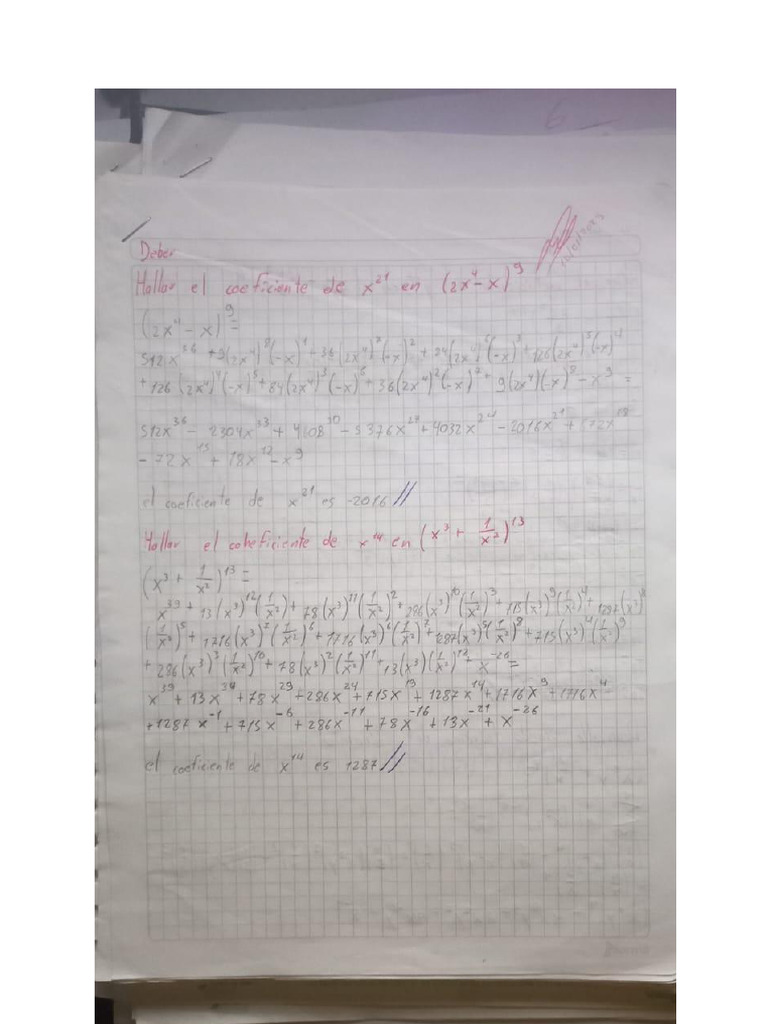 6
Deber
Hallar el coeficiente de x^21 en (2x^4 - x)^9
(2x^4 - x)^9 =
512x^36 + 9(2x^4)^8(-x)^1 + 36(2x^4)^7(-x)^2 + 24(2x^4)^6(-x)^3 + 126(2x^4)^5(-x)^4
+ 126(2x^4)^4(-x)^5 + 84(2x^4)^3(-x)^6 + 36(2x^4)^2(-x)^7 + 9(2x^4)(-x)^8 - x^9 =
512x^36 - 2304x^33 + 4608^30 - 5376x^27 + 4032x^24 - 2016x^21 + 672x^18
- 72x^15 + 18x^12 - x^9
el coeficiente de x^21 es -2016 //
Hallar el coheficiente de x^14 en (x^3 + 1/x^2)^13
(x^3 + 1/x^2)^13 =
x^39 + 13(x^3)^12(1/x^2) + 78(x^3)^11(1/x^2)^2 + 286(x^3)^10(1/x^2)^3 + 715(x^3)^9(1/x^2)^4 + 1287(x^3)^8
(1/x^2)^5 + 1716(x^3)^7(1/x^2)^6 + 1716(x^3)^6(1/x^2)^7 + 1287(x^3)^5(1/x^2)^8 + 715(x^3)^4(1/x^2)^9
+ 286(x^3)^3(1/x^2)^10 + 78(x^3)^2(1/x^2)^11 + 13(x^3)(1/x^2)^12 + x^-26 =
x^39 + 13x^34 + 78x^29 + 286x^24 + 715x^19 + 1287x^14 + 1716x^9 + 1716x^4
+ 1287x^-1 + 715x^-6 + 286x^-11 + 78x^-16 + 13x^-21 + x^-26
el coeficiente de x^14 es 1287 //